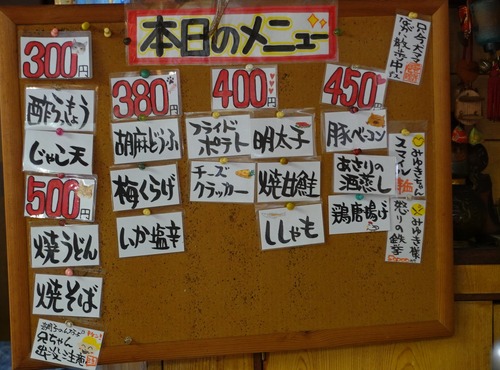 本日のメニュー
300円
酢らっきょう
じゃこ天
500円
焼うどん
焼そば
兄ちゃん
出没注意
380円
胡麻どうふ
梅くらげ
いか塩辛
400円
フライド
ポテト
チーズ
クラッカー
明太子
焼甘鮭
ししゃも
450円
豚ベーコン
あさりの
酒蒸し
鶏唐揚げ
みゆきちゃん
スマイル
みゆき様
怒りの鉄拳